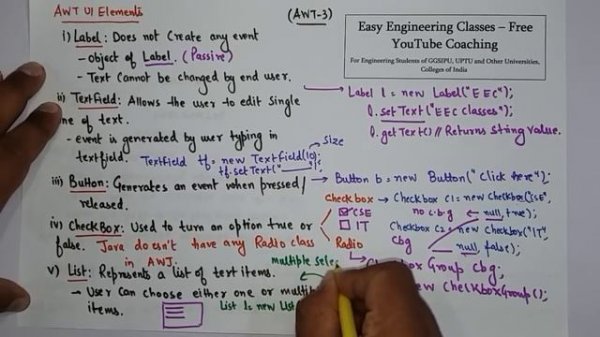 AWT UI Elements
(AWT-3)
Easy Engineering Classes – Free
YouTube Coaching
For Engineering Students of GGSIPU, UPTU and Other Universities,
Colleges of India
i) Label: Does not Create any event
- object of Label. (Passive)
- Text Cannot be changed by end user.
Label l = new Label("EEC");
l.setText("EEC classes");
l.getText() // Returns String value.
ii) TextField: Allows the user to edit single
line of text.
- event is generated by user typing in
textfield.
TextField tf = new TextField(10);
size
tf.setText("      ");
iii) Button: Generates an event when pressed/
released.
Button b = new Button("Click here");
iv) CheckBox: Used to turn an option true or
false.
Java doesn't have any Radio class
in AWJ.
Checkbox
CSE
IT
Radio
Checkbox C1 = new Checkbox("CSE",
no c.b.g
null, true);
Checkbox C2 = new Checkbox("IT"
cbg
null, false);
Group cbg;
new CheckboxGroup();
v) List: Represents a list of text items.
- User can choose either one or
items.
multiple
List l = new List